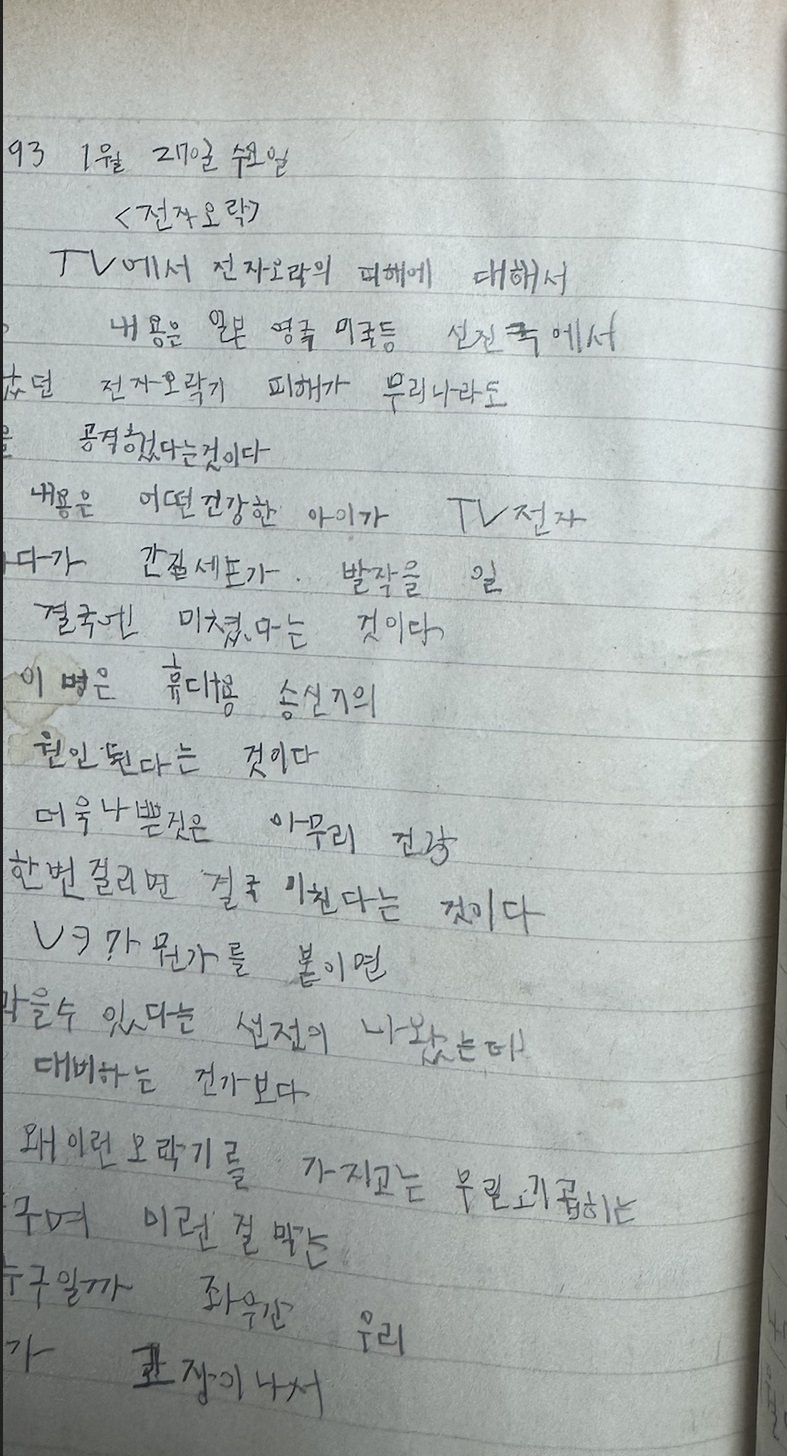 93 1월 27일 수요일
<전자오락>
TV에서 전자오락의 피해에 대해서
내용은 일본 영국 미국등 선진국에서
던 전자오락기 피해가 우리나라도
를 공격하였다는것이다
내용은 어떤건강한 아이가 TV전자
다가 간질세포가. 발작을 일
결국엔 미쳤다는 것이다
이 병은 휴대용 송신기의
원인 된다는 것이다
더욱나쁜것은 아무리 건강
한번걸리면 결국 미친다는 것이다
뭔가를 붙이면
막을수 있다는 선전이 나왔는데
대비하는 건가보다
왜이런 오락기를 가지고는
구며 이런 걸 막는
누구일까 좌우간 우리
가 고장이나서